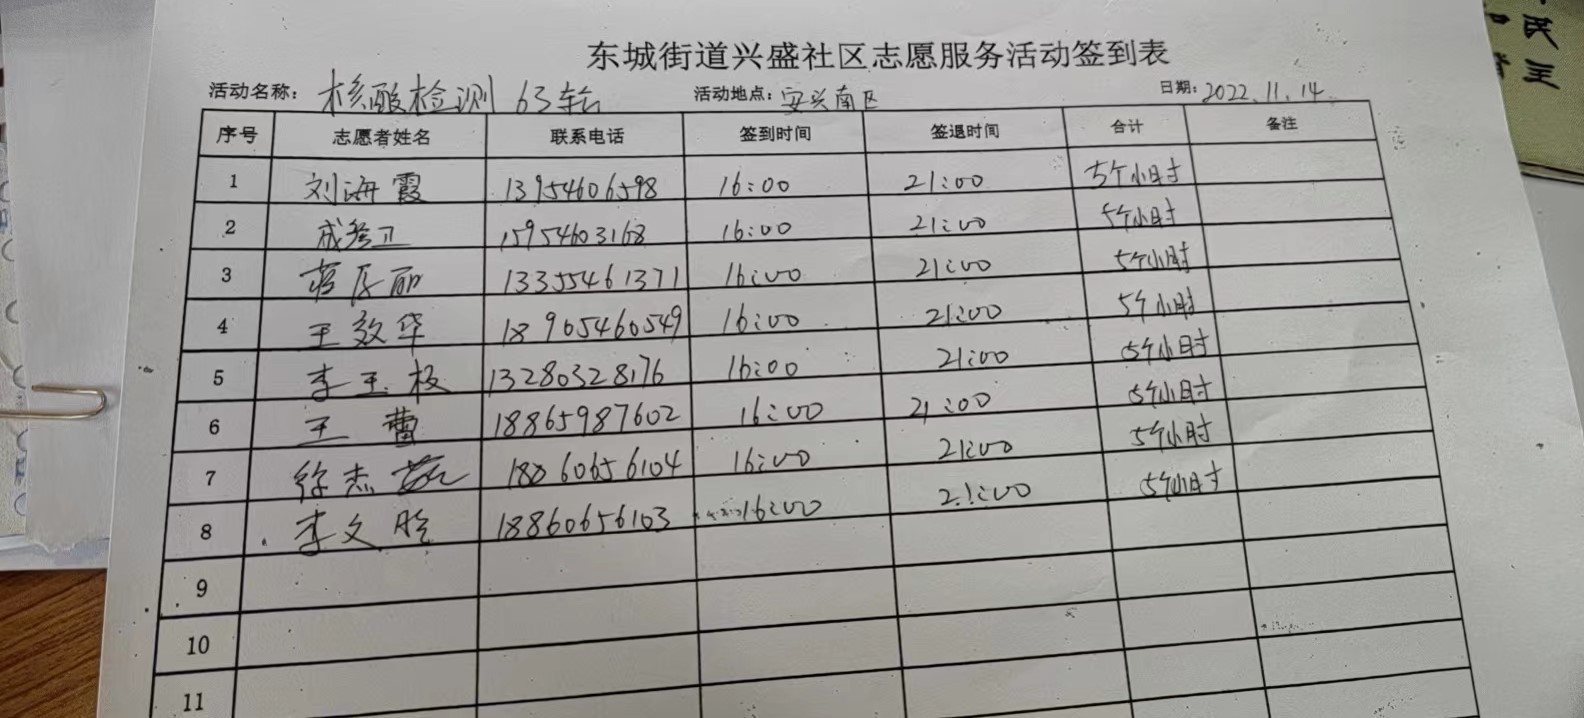 民主
和
东城街道兴盛社区志愿服务活动签到表
活动名称: 核酸检测 63轮 活动地点: 安兴南区 日期: 2022.11.14
序号 志愿者姓名 联系电话 签到时间 签退时间 合计 备注
1 刘海霞 13954606598 16:00 21:00 5个小时
2 15954603168 16:00 21:00 5个小时
3 13355461371 16:00 21:00 5个小时
4 王效华 18905460549 16:00 21:00 5个小时
5 李玉极 13280328176 16:00 21:00 5个小时
6 王蕾 18865987602 16:00 21:00 5个小时
7 徐杰 18860656104 16:00 21:00 5个小时
8 李文 18860656103 16:00 21:00 5个小时
9
10
11